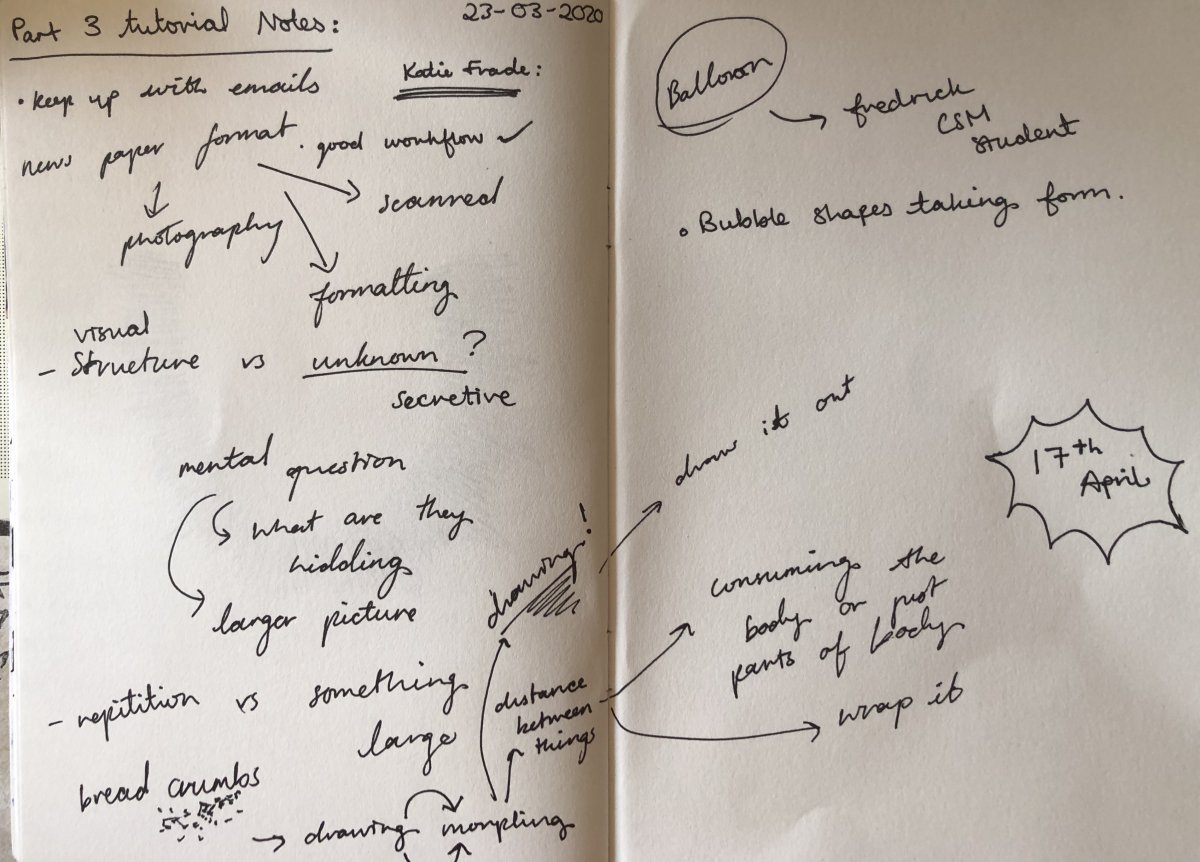 Part 3 tutorial Notes:
23-03-2020
• keep up with emails
Katie Frade:
news paper format. good workflow ✓
scanned
photography
formatting
visual
- structure vs unknown ?
secretive
mental question
what are they
hidding
larger picture
- repitition vs something
large
bread crumbs
drawing morpling
drawing!
distance
between
things
Balloron
fredrick
CSM
student
• Bubble shapes taking form.
draw it out
17th
April
consuming the
body or just
parts of body
wrap it